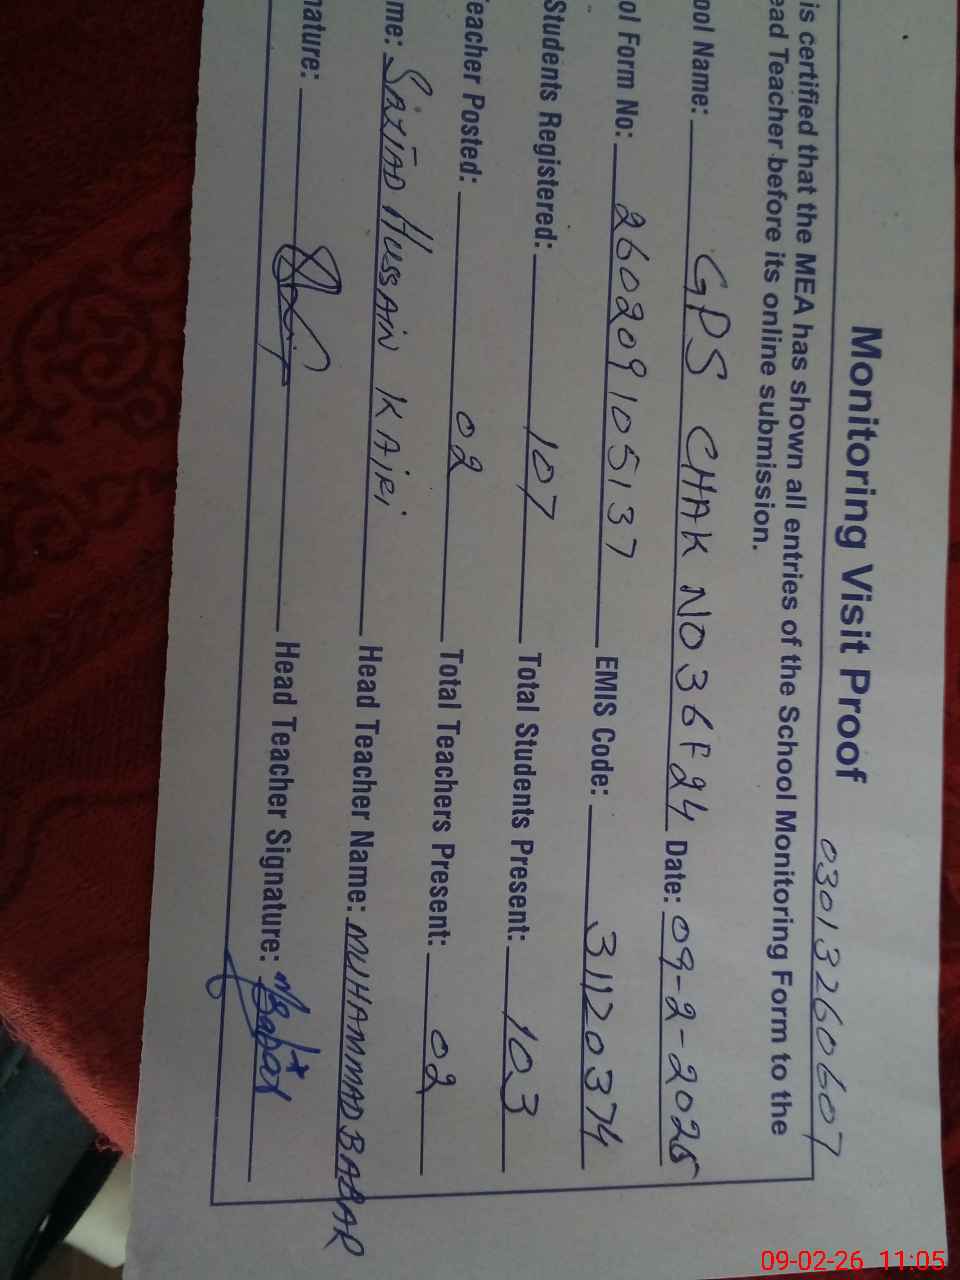 Monitoring Visit Proof
03013260607
is certified that the MEA has shown all entries of the School Monitoring Form to the
ead Teacher before its online submission.
ool Name: GPS CHAK NO 36 F 24 Date: 09-2-2025
ol Form No: 260209105137 EMIS Code: 31120374
Students Registered: 107 Total Students Present: 103
eacher Posted: 02 Total Teachers Present: 02
me: SAJJAD HUSSAIN KAIRI Head Teacher Name: MUHAMMAD BABAR
nature: Head Teacher Signature:
09-02-26 11:05